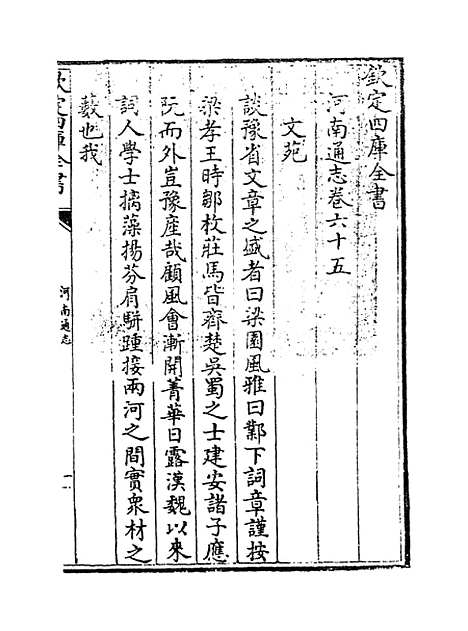 欽定四庫全書
河南通志卷六十五
文苑
談豫省文章之盛者曰梁園風雅曰鄴下詞章謹按
梁孝王時鄒枚莊馬皆齊楚吳蜀之士建安諸子應
阮而外豈豫產哉顧風會漸開菁華日露漢魏以來
詞人學士摛藻揚芬肩駢踵接兩河之間實衆材之
藪也我
欽定四庫全書
河南通志
一